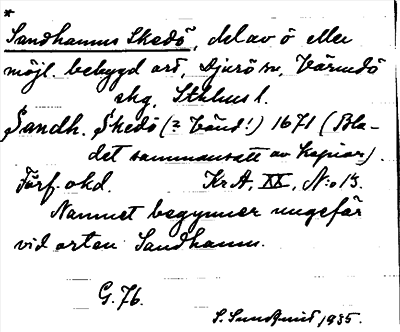 *
Sandhamns Skedö, del av ö eller
möjl. bebygd ort, Djurö sn, Värmdö
skg, Sthlms l.
Sandh. Skedö (= Vänd!) 1671 (Bla-
det sammansatt av kopior).
Förf. okd. Kr A, XX, N:o 13.
Namnet begynner ungefär
vid orten Sandhamn.
G. 76.
S. Sundqvist 1935.